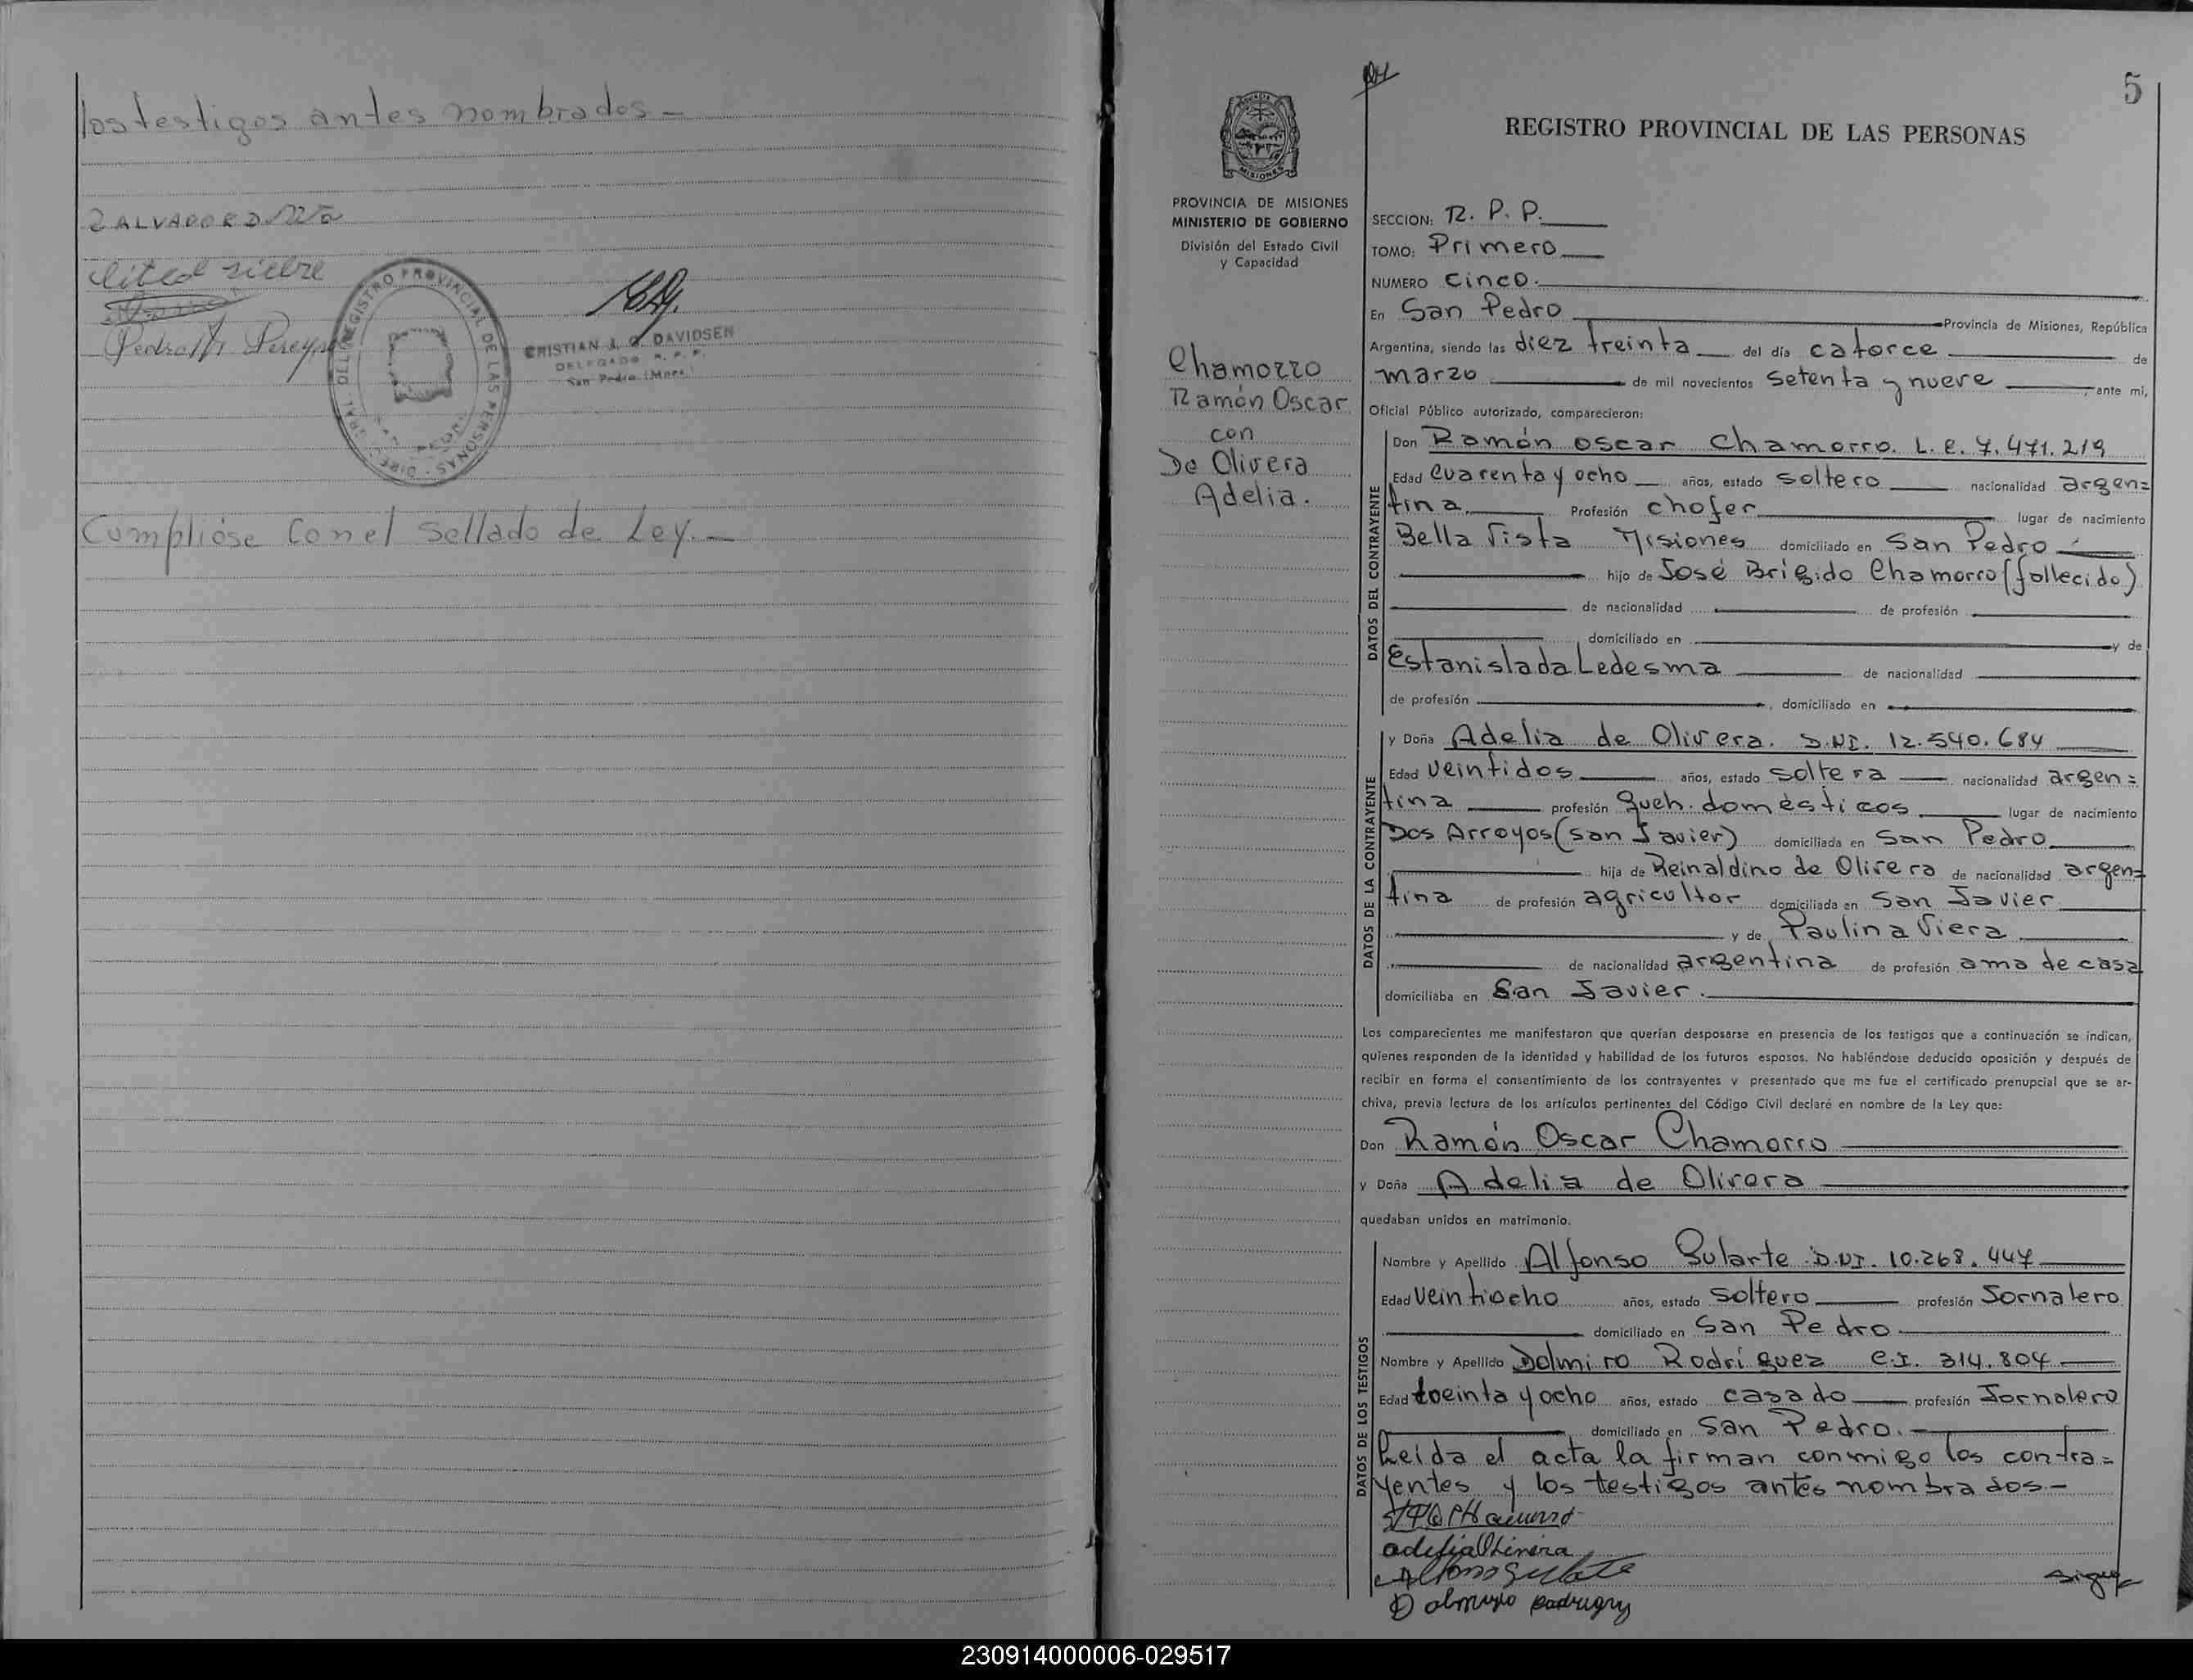 los testigos antes nombrados -
REGISTRO PROVINCIAL DE LAS PERSONAS
CRISTIAN J. G. DAVIDSEN
DELEGADO R. P. P.
San Pedro (Mnes.)
Pedro Pereyra
Cumplióse Con el Sellado de Ley. -
5
MISIONES
PROVINCIA DE MISIONES
MINISTERIO DE GOBIERNO
División del Estado Civil
y Capacidad
Chamorro
Ramón Oscar
con
De Olivera
Adelia.
REGISTRO PROVINCIAL DE LAS PERSONAS
SECCION: R. P. P.
TOMO: Primero
NUMERO Cinco.
En San Pedro Provincia de Misiones, República
Argentina, siendo las diez treinta del día catorce de
marzo de mil novecientos setenta y nueve, ante mí,
Oficial Público autorizado, comparecieron:
DATOS DEL CONTRAYENTE
Don Ramón Oscar Chamorro. L. E. 7.471.219
Edad cuarenta y ocho años, estado soltero nacionalidad argen=
tina Profesión chofer lugar de nacimiento
Bella Vista Misiones domiciliado en San Pedro
hijo de José Brígido Chamorro (fallecido)
de nacionalidad de profesión
domiciliado en y de
Estanislada Ledesma de nacionalidad
de profesión , domiciliado en
DATOS DE LA CONTRAYENTE
y Doña Adelia de Olivera. D.NI. 12.540.684
Edad veintidos años, estado soltera nacionalidad argen=
tina profesión queh. domésticos lugar de nacimiento
Dos Arroyos (San Javier) domiciliada en San Pedro
hija de Reinaldino de Olivera de nacionalidad argen=
tina de profesión agricultor domiciliada en San Javier
y de Paulina Viera
de nacionalidad argentina de profesión ama de casa
domiciliaba en San Javier.
Los comparecientes me manifestaron que querían desposarse en presencia de los testigos que a continuación se indican,
quienes responden de la identidad y habilidad de los futuros esposos. No habiéndose deducido oposición y después de
recibir en forma el consentimiento de los contrayentes y presentado que me fue el certificado prenupcial que se ar-
chiva, previa lectura de los artículos pertinentes del Código Civil declaré en nombre de la Ley que:
Don Ramón Oscar Chamorro
y Doña Adelia de Olivera
quedaban unidos en matrimonio.
DATOS DE LOS TESTIGOS
Nombre y Apellido Alfonso Gularte D.NI. 10.268.447
Edad veintiocho años, estado soltero profesión Jornalero
domiciliado en San Pedro
Nombre y Apellido Dolmiro Rodríguez C.I. 314.804
Edad treinta y ocho años, estado casado profesión Jornalero
domiciliado en San Pedro.
Leida el acta la firman conmigo los contra=
yentes y los testigos antes nombrados -
Sigue
230914000006-029517